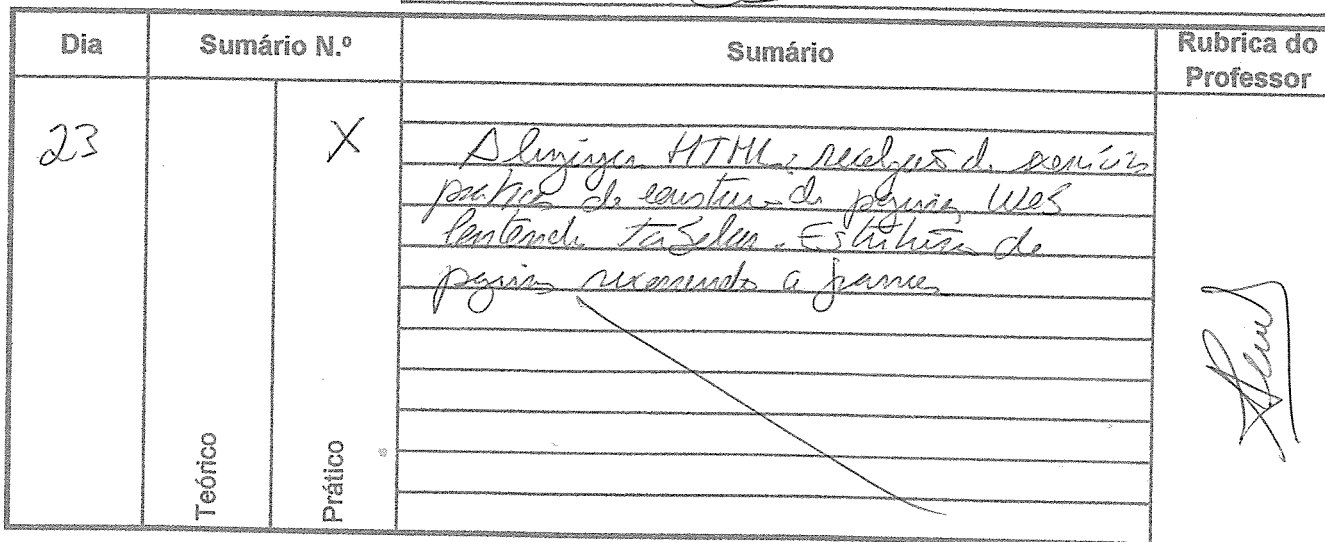 Dia Sumário N.º Sumário Rubrica do Professor
23 X
A linguagem HTML: realização de exercícios
práticos de construção de páginas Web
contendo tabelas. Estrutura de
páginas recorrendo a frames
Teórico Prático